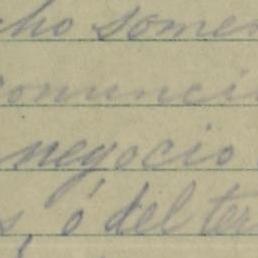 cho some
onunci
negocio
s, ó del ter